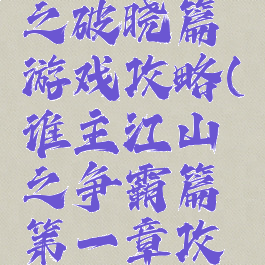 之破晓篇
游戏攻略(
谁主江山
之争霸篇
第一章攻